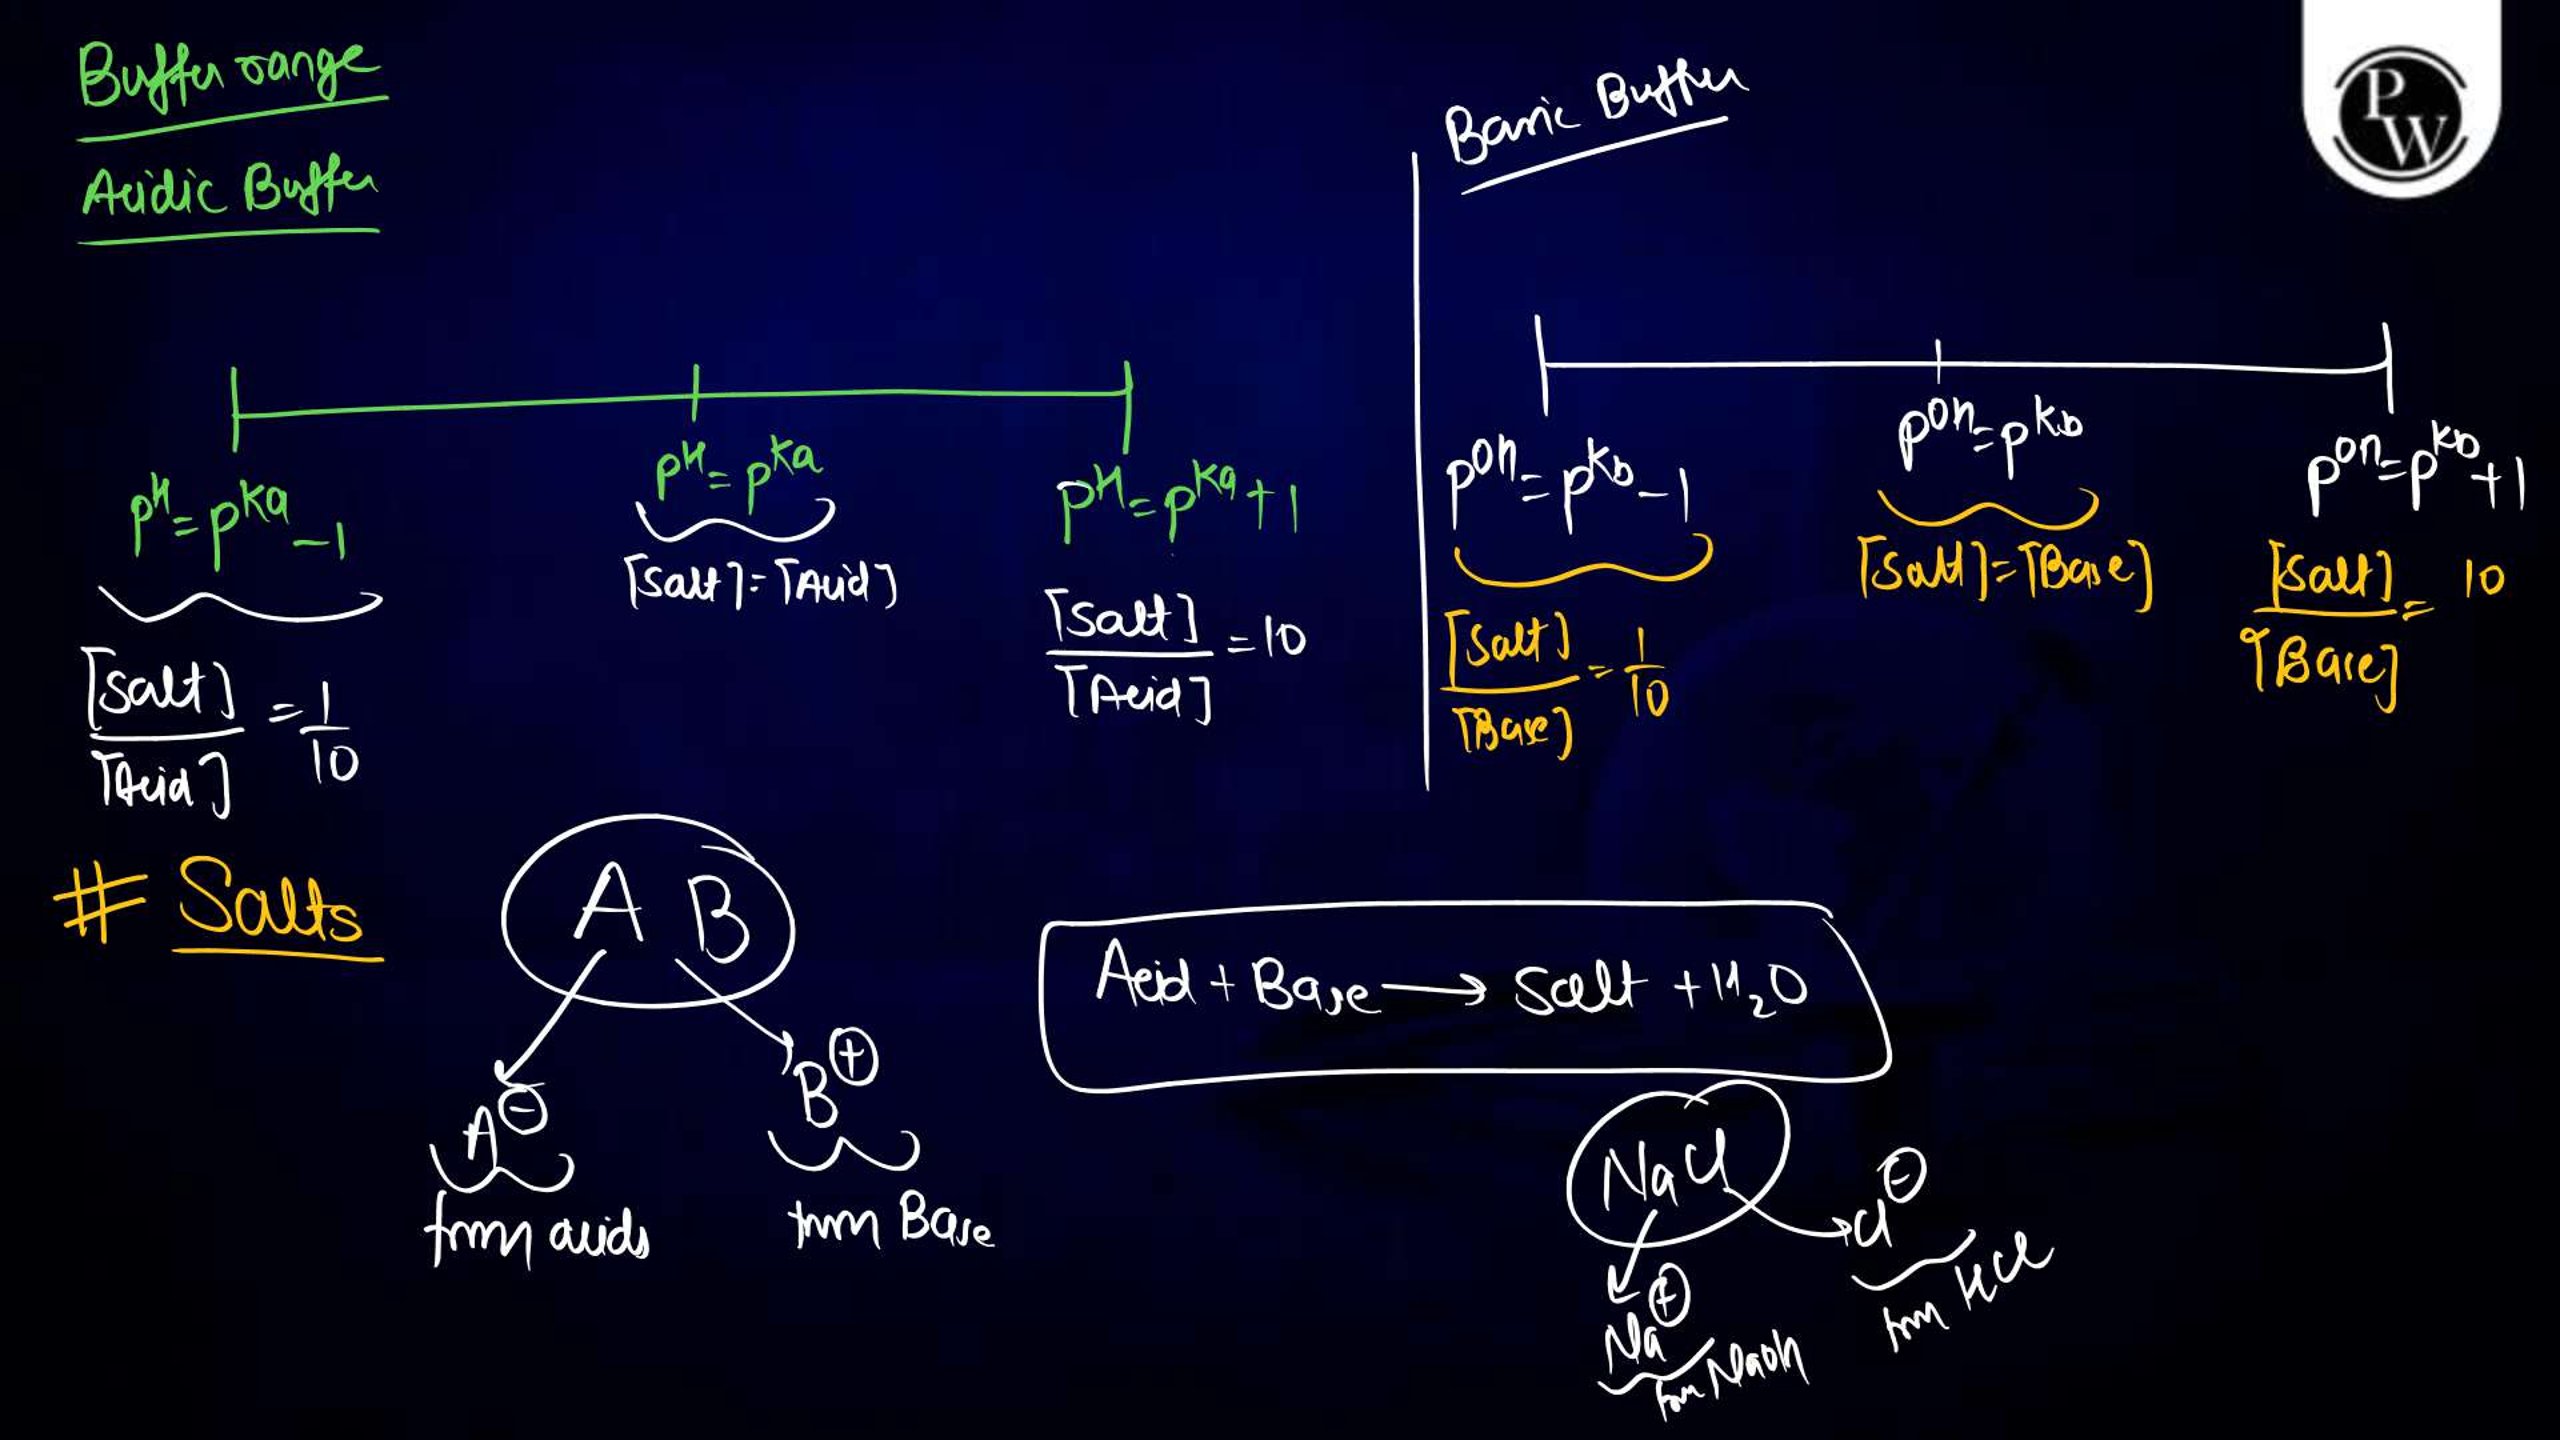 Buffer range
Acidic Buffer
pH = pKa - 1
[Salt] / [Acid] = 1/10
pH = pKa
[Salt] = [Acid]
pH = pKa + 1
[Salt] / [Acid] = 10
Basic Buffer
pOH = pKb - 1
[Salt] / [Base] = 1/10
pOH = pKb
[Salt] = [Base]
pOH = pKb + 1
[Salt] / [Base] = 10
# Salts
A B
A⊖
from acids
B⊕
from Base
Acid + Base → Salt + H₂O
NaCl
Na⊕
from NaOH
Cl⊖
from HCl
PW